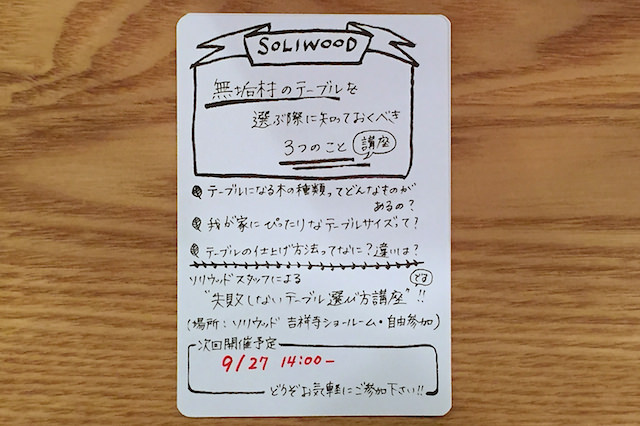 SOLIWOOD
無垢材のテーブルを
選ぶ際に知っておくべき
3つのこと 講座
テーブルになる木の種類ってどんなものが
あるの?
我が家にぴったりなテーブルサイズって?
テーブルの仕上げ方法ってなに?違いは?
ソリウッドスタッフによる
"失敗しないテーブル選び方講座" です!!
(場所:ソリウッド 吉祥寺ショールーム・自由参加)
次回開催予定
9/27 14:00-
どうぞお気軽にご参加下さい!!